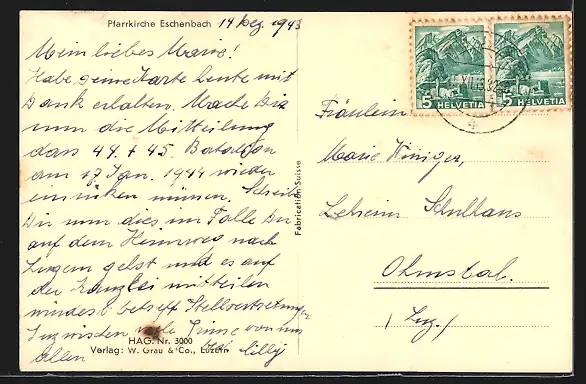 Pfarrkirche Eschenbach 14 Dez. 1943
Mein liebes Marie!
Habe deine Karte heute mit
Dank erhalten. Mache Dir
nun die Mitteilung
dass 44. + 45. Bataillon
am 17 Jan. 1944 wieder
einrücken müssen. Schreibe
Dir nun dies im Falle Du
auf dem Heimweg nach
Luzern gehst und es auf
der Kanzlei mitteilen
betreff Stellvertretung
Inzwischen viele Grüsse von uns
allen
HAG. Nr. 3000
Verlag: W. Grau & Co., Luzern
Fabrication Suisse
5 HELVETIA
5 HELVETIA
4
Fräulein
Marie Winiger,
Lehrerin Schulhaus
Ohmstal.
(Luz.)